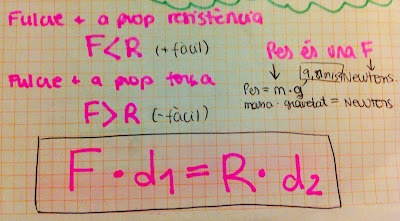 Fulcre + a prop resistència
F<R (+ fàcil)
Fulcre + a prop força
F>R (- fàcil)
Pes és una F
9,8 m/s² Newtons.
Pes = m · g
massa · gravetat = NEWTONS
F · d1 = R · d2